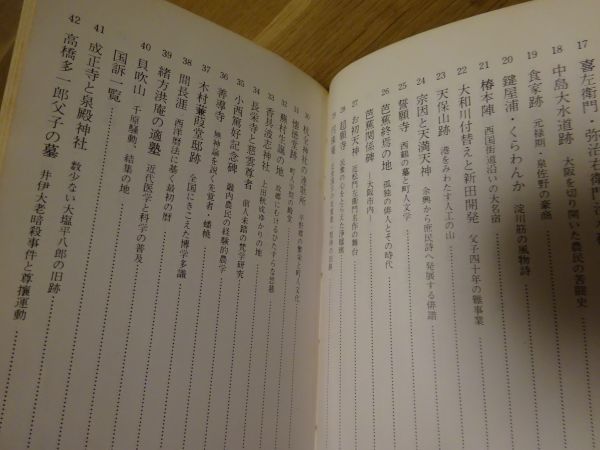 17 喜左衛門・弥治右衛門
18 中島大水道跡 大阪を切り開いた農民の苦闘史
19 食家跡 元禄期・泉佐野の豪商
20 鍵屋浦・くらわんか 淀川筋の風物詩
21 椿本陣 西国街道沿いの大名宿
22 大和川付替えと新田開発 父子四十年の難事業
23 天保山跡 港をみわたす人工の山
24 宗因と天満天神 余興から庶民詩へ発展する俳諧
25 誓願寺 西鶴の墓と町人文学
26 芭蕉終焉の地 孤独の俳人とその時代
芭蕉関係碑 ―大阪市内―
27 お初天神 近松門左衛門名作の舞台
28 超願寺
31 懐徳堂跡 町人学問の殿堂
32 蕪村生誕の地 故郷にむけるひたすらな思慕
33 香具波志神社 上田秋成ゆかりの地
34 長栄寺と慈雲尊者 前人未踏の梵学研究
35 小西篤好記念碑 畿内農民の経験的農学
36 善導寺 無神論を説く先覚者・蟠桃
37 木村蒹葭堂邸跡 全国にきこえた博学多識
38 間長涯 西洋暦法に基く最初の暦
39 緒方洪庵の適塾 近代医学と科学の普及
40 貝吹山 千原騒動、結集の地
国訴一覧
41 成正寺と泉殿神社 数少ない大塩平八郎の旧跡
42 高橋多一郎父子の墓 井伊大老暗殺事件と尊攘運動